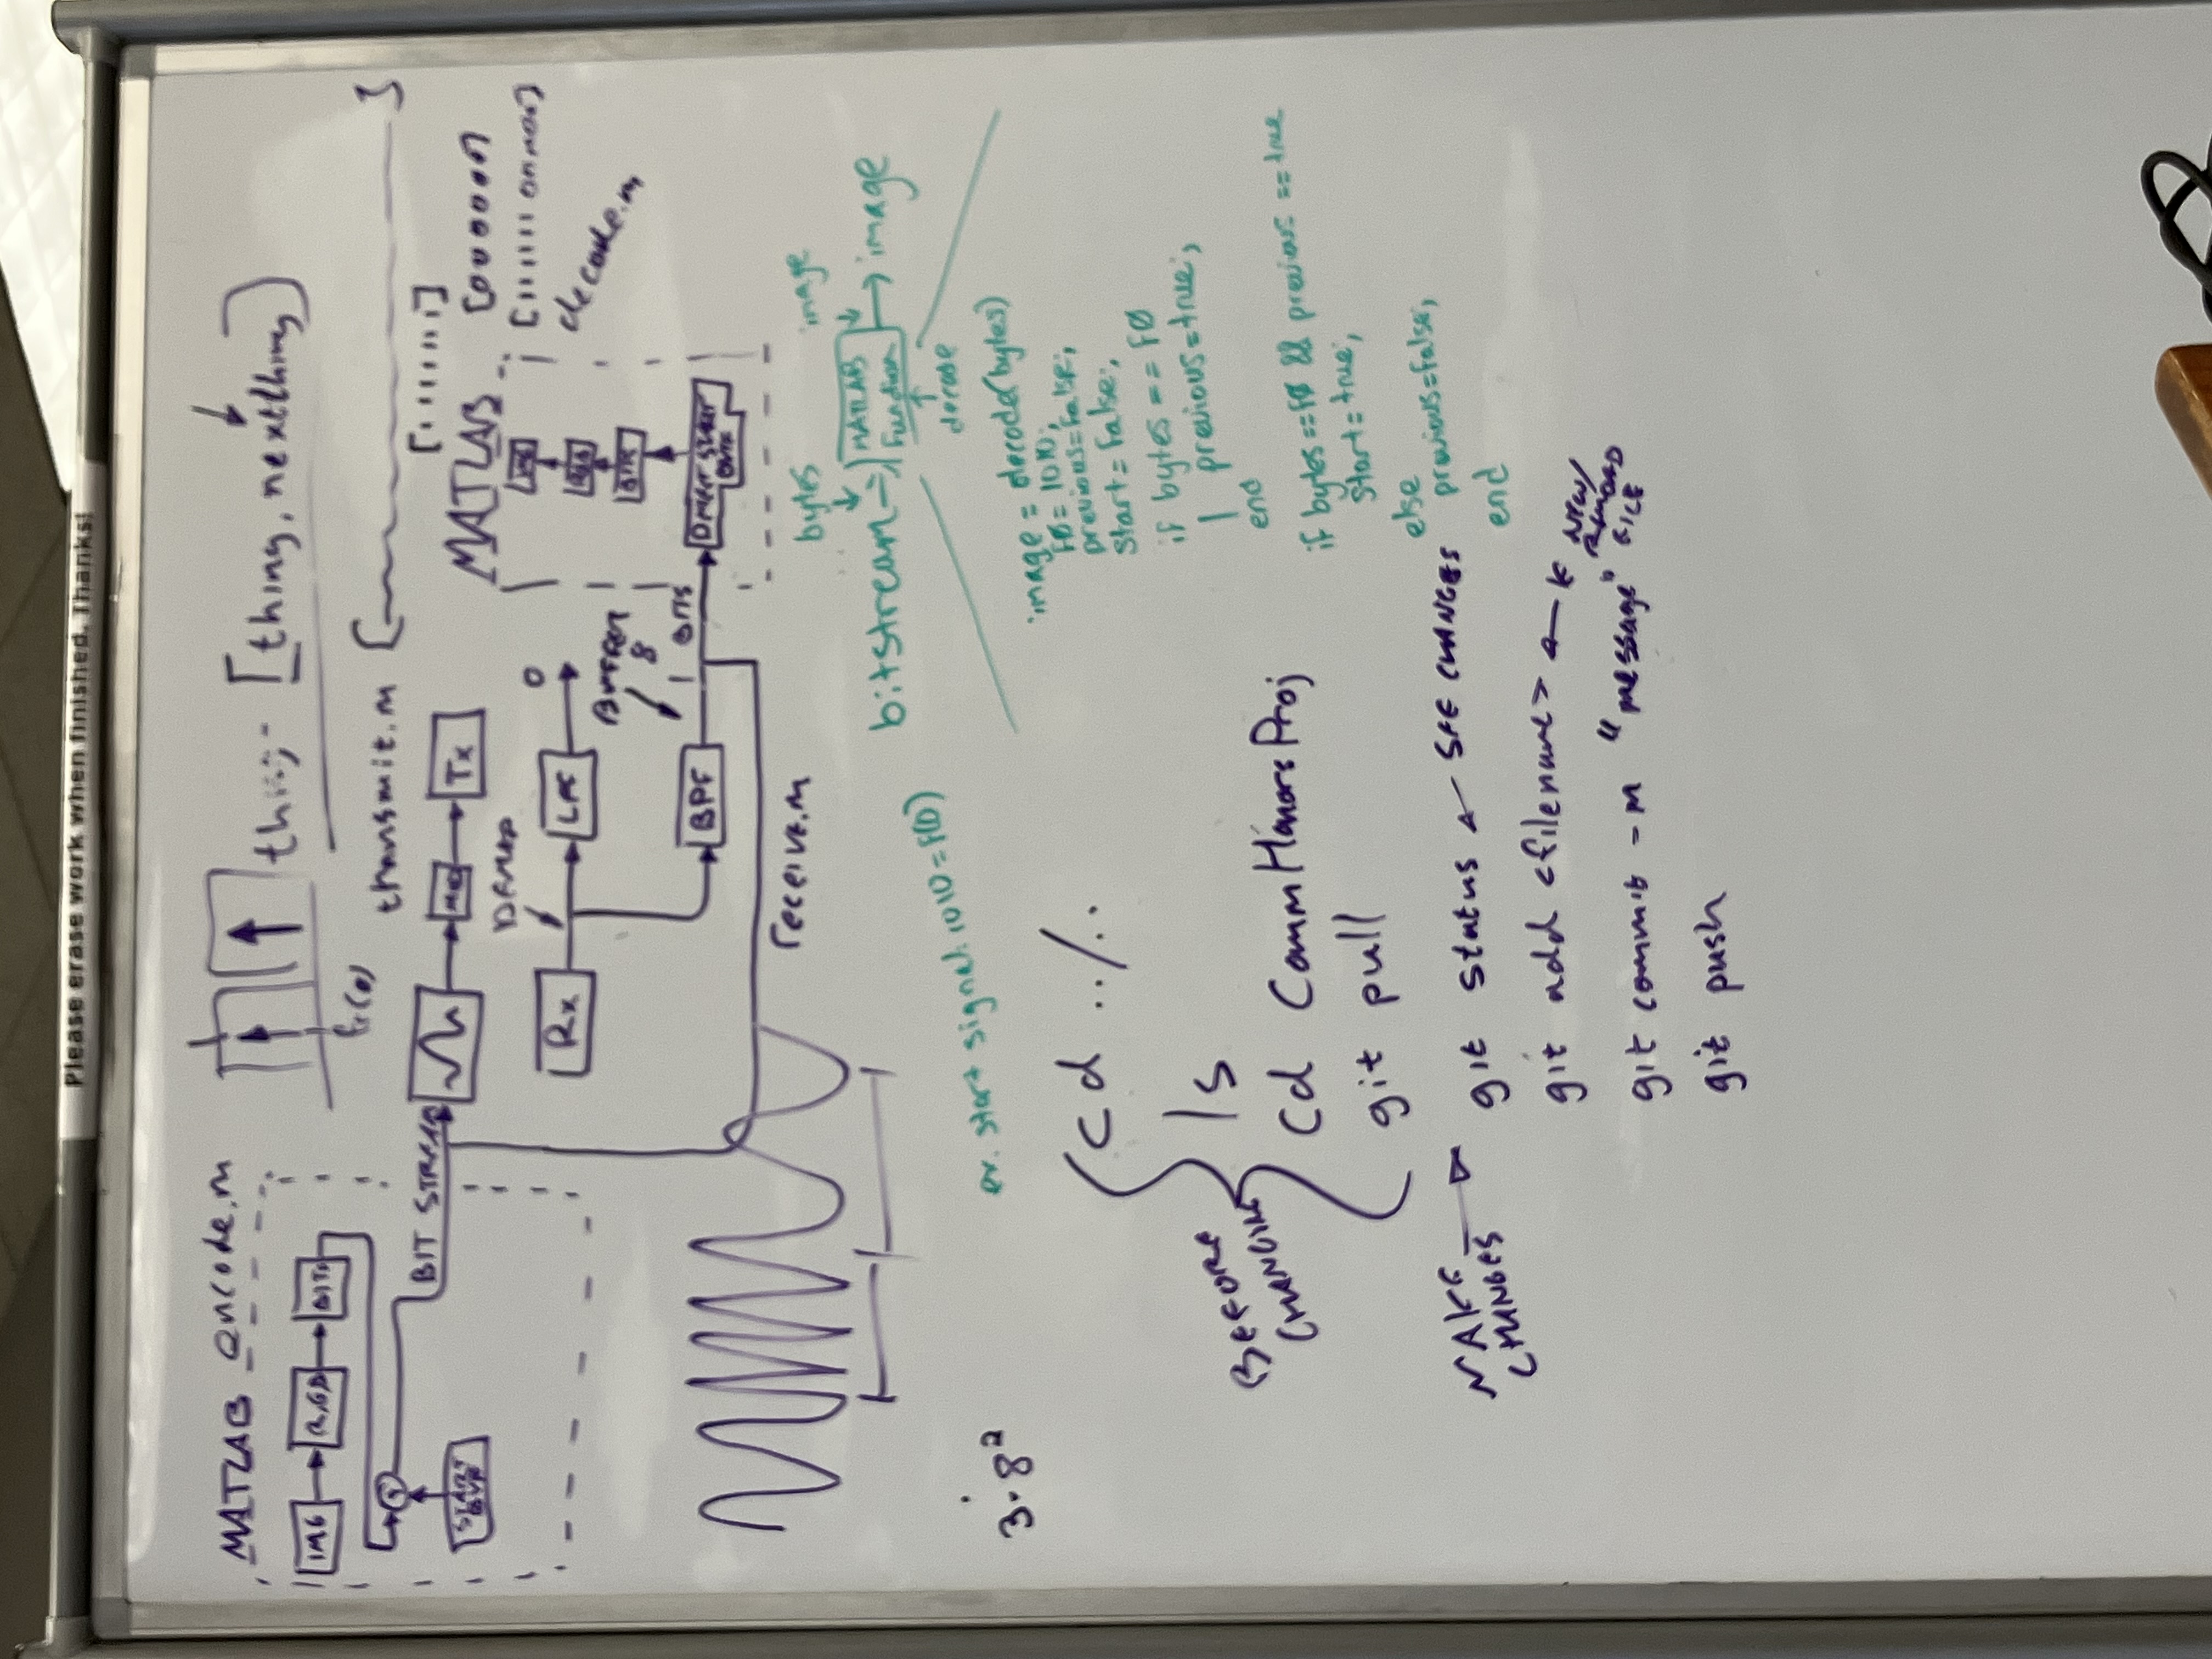 Please erase work when finished. Thanks!
MATLAB encode.m
thing = [thing, nextthing]
IMG
R,G,B
BITS
START
BIT STREAM
transmit.m
Tx
MATLAB
decode.m
Rx
LPF
0
BUFFER
8
BPF
1
BITS
START
receive.m
bytes
image
bitstream
MATLAB
Function
image
decode
ex. start signal: 1010 = f(0)
3.8²
image = decode(bytes)
fØ = 1010;
previous=false;
start=false;
if bytes == fØ
previous=true;
end
if bytes==fØ && previous == true
start=true;
else
previous=false;
end
BEFORE
CHANGING
cd ../..
ls
cd CommHonorsProj
git pull
MAKE
CHANGES
git status
SEE CHANGES
git add <filename>
NEW/
FILE
git commit -m "message"
git push